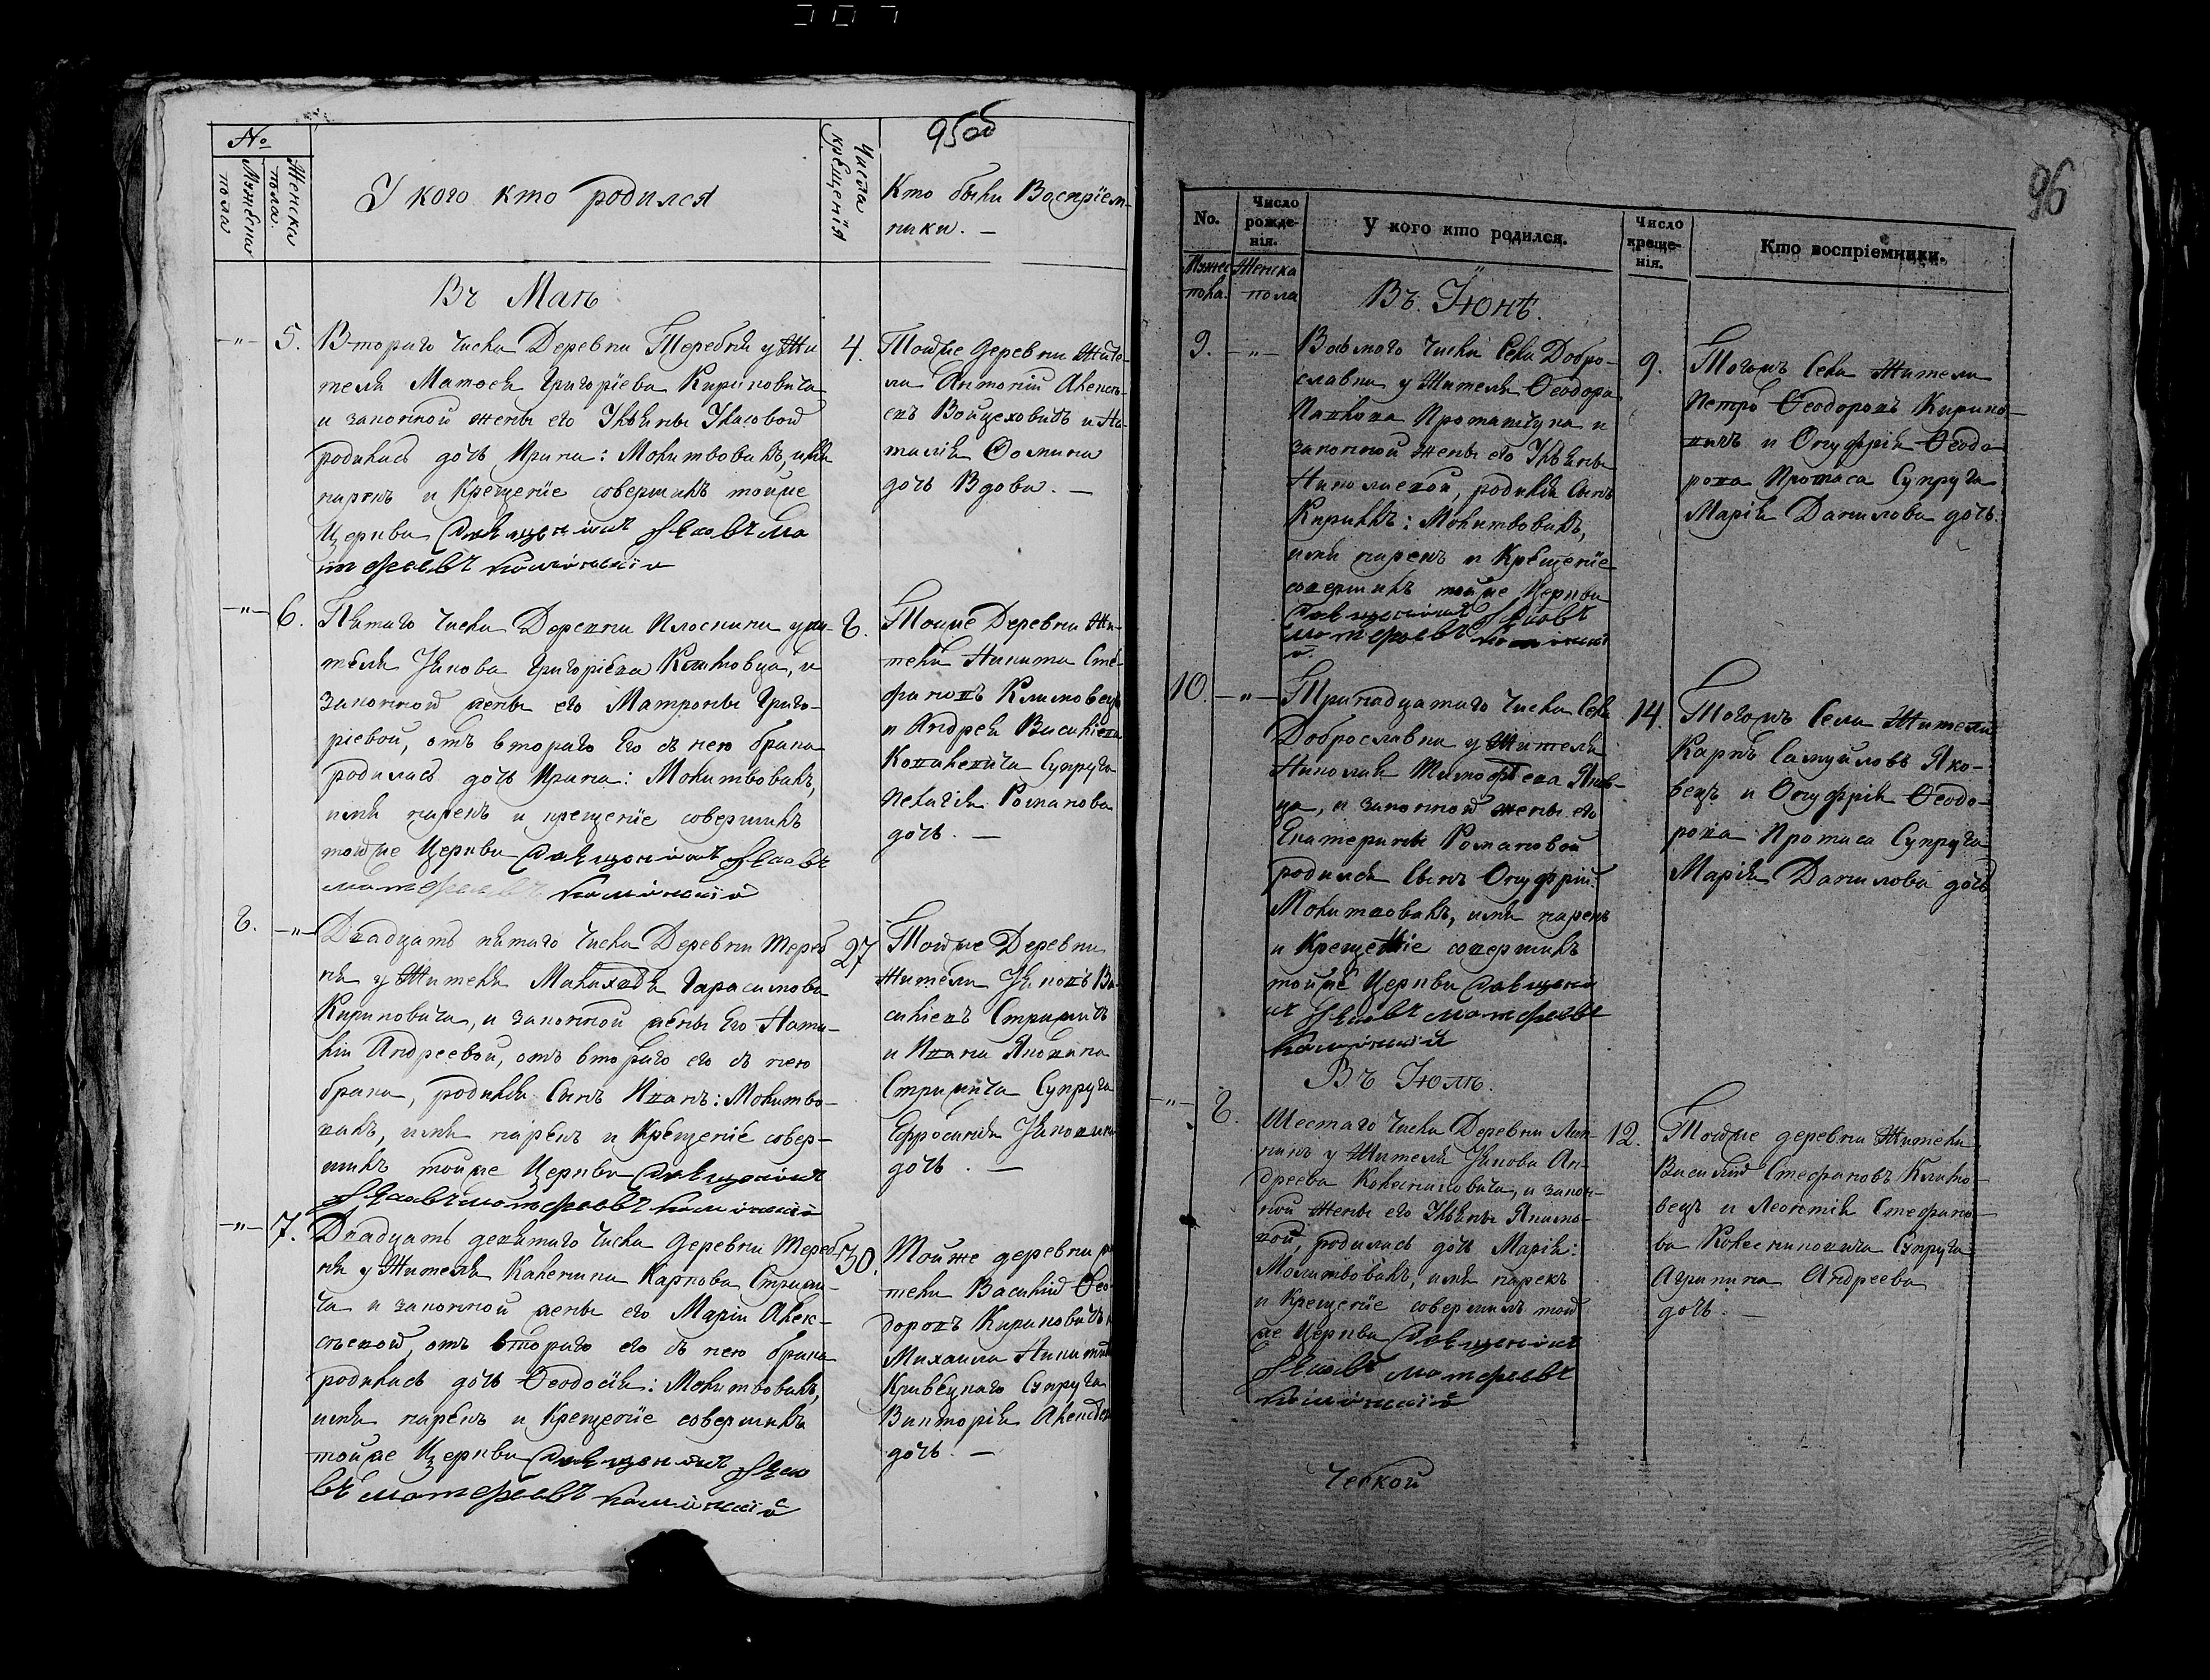 95об
№
Мужеска пола
Женска пола.
У кого кто родился
Числа крещенія
Кто были Воспріем-
ники. —
Въ Маѣ
—"— 5.
Втораго числа Деревни Теребня у Жи
теля Матөея Григоріева Кириковича
и законной жены его Ульяны Уласовой
родилась дочь Ирина: Молитвовалъ, имя
нарекъ и Крещеніе совершилъ тойже
Церкви Священникъ Яковъ Ма
тфеевъ Каминскій
4.
Тойже деревни Жите-
ли Антоній Алексѣ-
евъ Войцеховичъ и На-
талія Өомина
дочь Вдова. —
—"— 6.
Пятаго числа Деревни Плоскини у жи-
теля Якова Григоріева Климовца, и
законной жены его Матроны Григо-
ріевой, отъ втораго Его съ нею брака
родилась дочь Ирина: Молитвовалъ,
имя нарекъ и крещеніе совершилъ
тойже Церкви Священникъ Яковъ
Матфеевъ Каминскій
8.
Тойже Деревни Жи-
тели Никита Сте-
фановъ Климовецъ
и Андрея Васильева
Ковалевича Супруга
Пелагія Романова
дочь. —
8. —"—
Двадцать пятаго числа Деревни Тереб
ня у Жителя Малиходя Гарасимова
Кириковича, и законной жены Его Ната-
ліи Андреевой, отъ втораго его съ нею
брака, родился Сынъ Иванъ: Молитво-
валъ, имя нарекъ и Крещеніе совер-
шилъ тойже Церкви Священникъ
Яковъ Матфеевъ Каминскій
27
Тойже Деревни
Жители Яковъ Ва-
сильевъ Стримичъ
и Ивана Яковина
Стримича Супруга
Ефросинія Яковина
дочь. —
—"— 7.
Двадцать девятаго числа деревни Тереб
ня у Жителя Каленика Карпова Стрими-
ча и законной жены его Маріи Алек-
сѣевой, отъ втораго его съ нею брака
родилась дочь Өеодосія: Молитвовалъ,
имя нарекъ и Крещеніе совершилъ
тойже Церкви Священникъ Яко
въ Матфеевъ Каминскій
30.
Тойже деревни жи
тели Василій Өео
доровъ Кириковичъ и
Михаила Никитина
Кривецкаго Супруга
Викторія Алексѣева
дочь. —
96
No.
Число рожде-нія.
У кого кто родился.
Число креще-нія.
Кто воспріемники.
Мужес пола.
Женска пола
Въ Іюнѣ.
9. —"—
Восьмого числа Села Добро-
славки у Жителя Өеодора
Павлова Протащука и
законной жены его Ульяны
Николаевой, родился Сынъ
Кириллъ: Молитвовалъ,
имя нарекъ и Крещеніе
совершилъ тойже Церкви
Священникъ Яковъ
Матфеевъ Камински
й.
9.
Тогожъ Села Жители
Петръ Өеодоровъ Кирико-
вичъ и Онуфрія Өеодо-
рова Протаса Супруга
Марія Данилова дочь.
10. —"—
Тринадцатаго числа Села
Доброславки у Жителя
Николая Тимофѣева Яков-
ца, и законной жены его
Екатерины Романовой
родился Сынъ Онуфрій:
Молитвовалъ, имя нарекъ
и Крещеніе совершилъ
тойже Церкви Священни
къ Яковъ Матфеевъ
Каминскій
14.
Тогожъ Села Жители
Карпъ Самуиловъ Яко-
вецъ и Онуфрія Өеодо-
рова Протаса Супруга
Марія Данилова дочь
Въ Іюлѣ.
—"— 8.
Шестаго числа Деревни Плос-
кинь у Жителя Якова Ан-
дреева Колесниковича, и закон-
ной жены его Ульяны Якимо-
вой, родилась дочь Марія:
Молитвовалъ, имя нарекъ
и Крещеніе совершилъ той
же Церкви Священникъ
Яковъ Матфеевъ
Каминскій
12.
Тойже деревни Жители
Василій Стефановъ Климо-
вецъ и Леонтія Стефано-
ва Колесниковича Супруга
Агрипина Андреева
дочь —